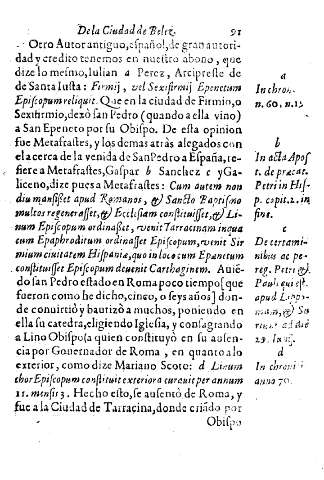 De la Ciudad de Belez.
91
Otro Autor antiguo, español, de gran autori-
dad y credito tenemos en nuestro abono, que
dize lo mesmo, Iulian a Perez, Arcipreste de
de Santa Iusta: Firmij, vel Sexifirmij Epenetum
Episcopum reliquit. Que en la ciudad de Firmio, o
Sexifirmio, dexò san Pedro (quando a ella vino)
a San Epeneto por su Obispo. De esta opinion
fue Metafrastes, y los demas atràs alegados con
el acerca de la venida de San Pedro a España, re-
fiere a Metafrastes, Gaspar b Sanchez c y Ga-
liceno, dize pues a Metafrastes: Cum autem non
diu mansisset apud Romanos, & Sancto Baptismo
multos regenerasset, & Ecclesiam constituisset, & Li-
num Episcopum ordinasset, venit Tarracinam in qua
cum Epaphroditum ordinasset Episcopum, venit Sir
mium ciuitatem Hispaniæ, quo in loco cum Epænetum
constituisset Episcopum deuenit Carthaginem. Auiẽ-
do san Pedro estado en Roma poco tiempo [que
fueron como he dicho, cinco, o seys años] don-
de conuirtiò y bautizò a muchos, poniendo en
ella su catedra, eligiendo Iglesia, y consagrando
a Lino Obispo (a quien constituyò en su ausen-
cia por Gouernador de Roma, en quanto a lo
exterior, como dize Mariano Scoto: d Linum
chor Episcopum constituit exteriora curauit per annum
11. mensis 3. Hecho esto, se ausentò de Roma, y
fue a la Ciudad de Tarracina, donde criãdo por
Obispo
a
In chron.
n. 60. n. 15
b
In acta Apos
t. de prædicat.
Petri in His-
p. copit. 2. in
fine.
c
De certami-
nibus ac pe-
reg. Petri &
Pauli, qui est
apud Lippo-
man, & Su-
29. Iunij.
d
In chroni
anno 70.